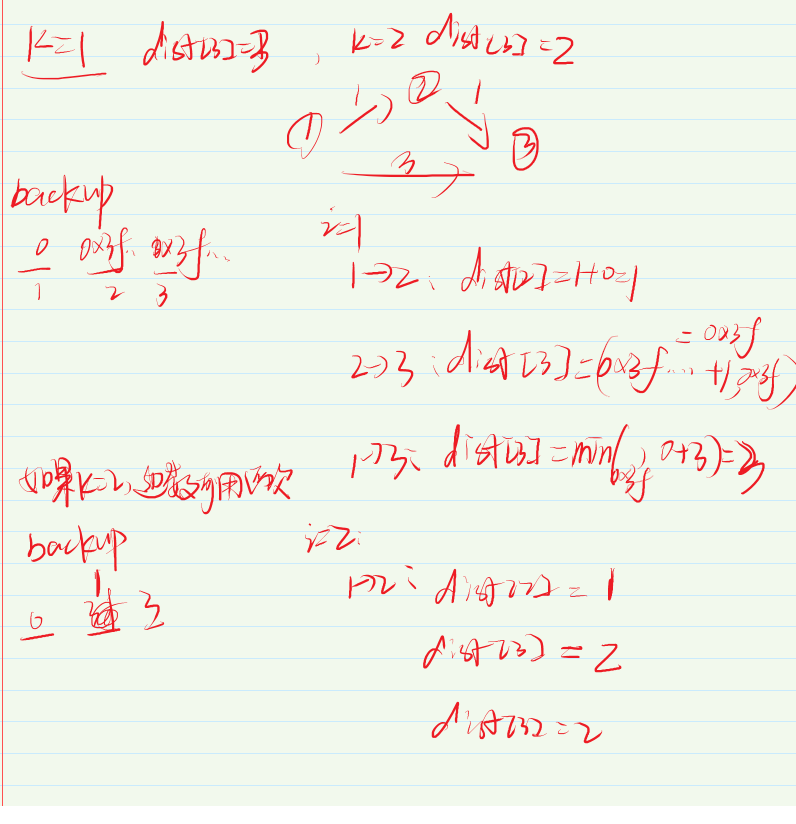 k=1 dist[3]=3, k=2 dist[3]=2
1 ② 1
① ③
3
backup
0 0x3f.. 0x3f...
1 2 3
i=1
1→2: dist[2]=1+0=1
2→3: dist[3]=(0x3f.... +1, 0x3f) = 0x3f
1→3: dist[3]=min(0x3f, 0+3)=3
如果k=2, 边数可用两次
backup
0 1 3
i=2:
1→2: dist[2]=1
dist[3]=2
dist[3]=2